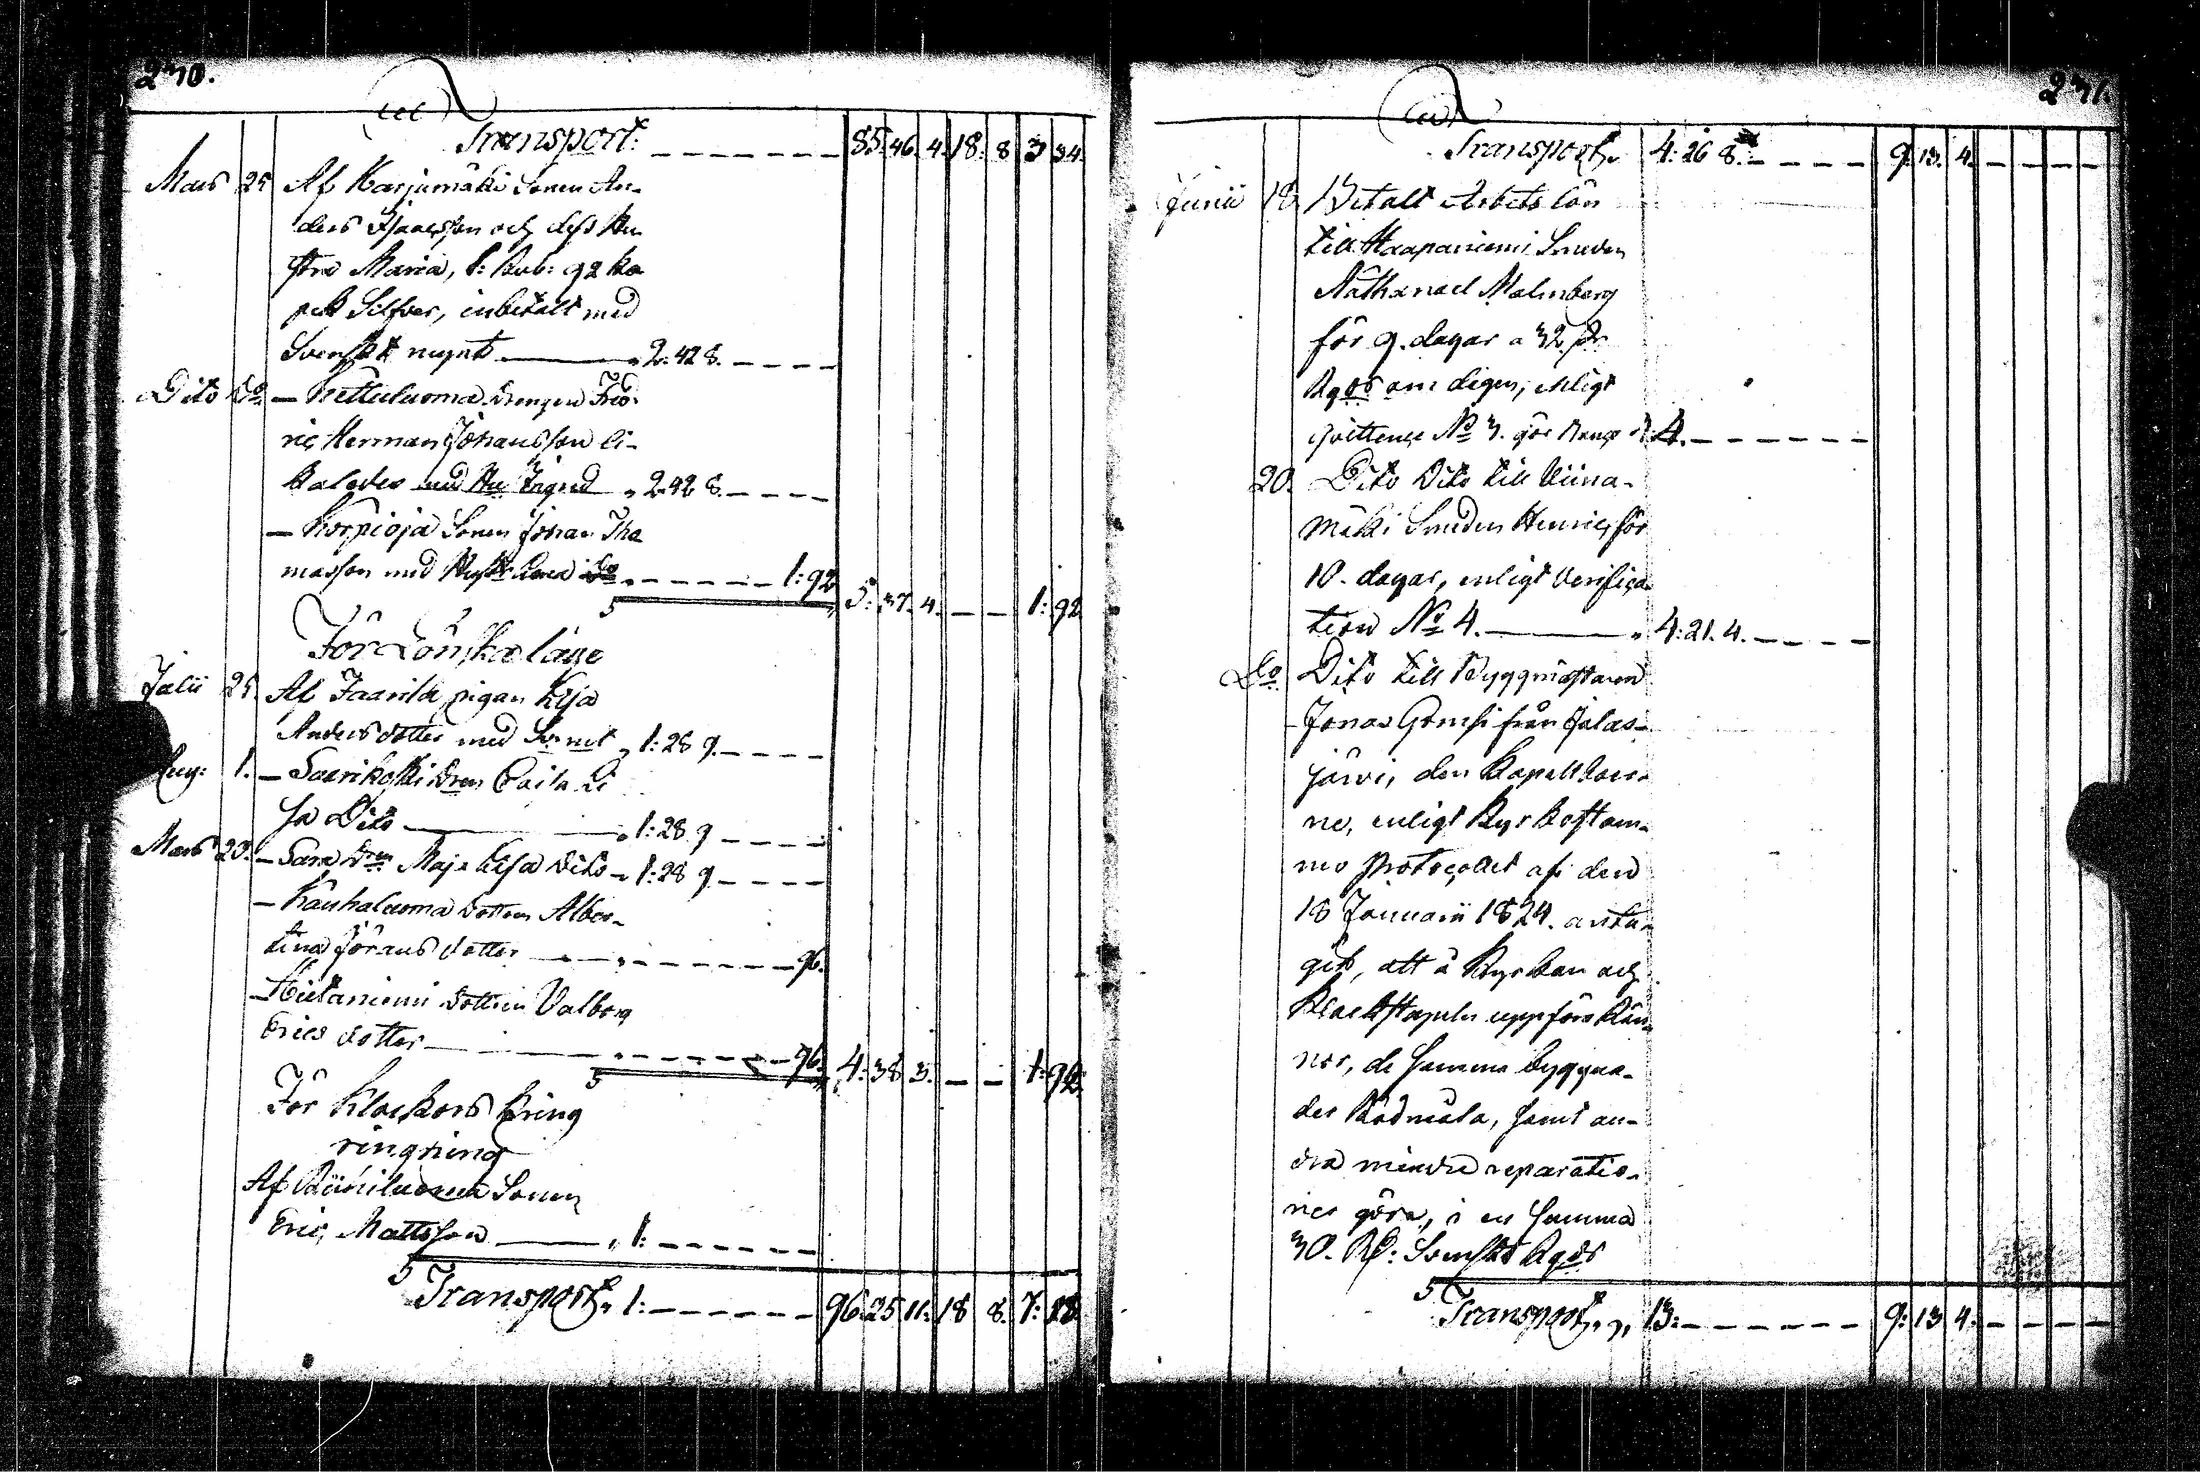 230.
Transport: 85. 46. 4. 18. 8 3 34.
Mars 25 Af Karjumäki Sonen An-
ders Isaacsson och dess Hu
stru Maria, 1: Rub: 92 ko
pek Silfver, inbetalt med
Svenskt mynt 2. 42 8.
Dito Do — Kettuluoma drengen Fred-
ric Herman Johansson li-
kaledes med Hu Ingrid 2. 42 8.
— Korpioja Sonen Johan Tho
masson med Hustr 1: 92 5: 37. 4. — — 1: 92
För Lönskaläge
Julii 25. Af Jaarila pigan Kajsa
Anders dotter med 1: 28 9.
Aug: 1. — Saarikoski Caisa Li
sa Dito 1: 28 9
Mars 20. — Sara Maja Lisa dito 1: 28 9
— Kauhaluoma dottren Alber-
tina Jörans dotter 96.
— Hietaniemi dottren Valborg
Erics dotter 96. 4. 38 3. — — 1: 92
För Klockors Kring
ringning
Af Riihiluoma Sonen
Eric Mattsson 1:
Transport 1: 96. 25 11: 18 8. 7: 18
231.
Transport 4: 26 8. 9. 13. 4.
Junii 18. Betalt Arbets lön
till Haapaniemi Smeden
Nathanael Malmberg
för 9. dagar a 32
Rgds om dagen, enligt
qvittence No 3. gör 4.
20. Dito Dito till Viina-
mäki Smeden Henric, för
10. dagar, enligt Verifica
tion No 4. 4: 21. 4.
Do Dito till Byggmästaren
Jonas från Jalas-
järvi, den
ne, enligt Kyrkostäm-
mo protocollet af den
18 Januarii 1824. anta-
git, att å Kyrkan och
Klockstapeln uppföra Rän-
nor, de samma byggna-
der Rödmåla, samt an-
dra mindre reparatio-
ner göra, i en summa
30. Rd: Svenskt Rgds
Transport 13: 9: 13 4